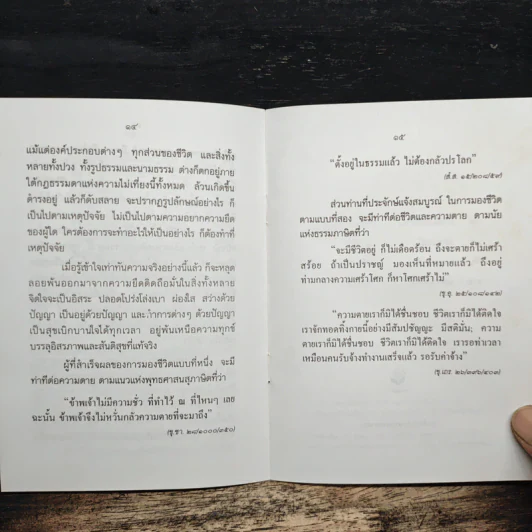 ๑๔
แม้แต่องค์ประกอบต่างๆ ทุกส่วนของชีวิต และสิ่งทั้ง
หลายทั้งปวง ทั้งรูปธรรมและนามธรรม ต่างก็ตกอยู่ภาย
ใต้กฎธรรมดาแห่งความไม่เที่ยงนี้ทั้งหมด ล้วนเกิดขึ้น
ดำรงอยู่ แล้วก็ดับสลาย จะปรากฏรูปลักษณ์อย่างไร ก็
เป็นไปตามเหตุปัจจัย ไม่เป็นไปตามความอยากความยึด
ของผู้ใด ใครต้องการจะทำอะไรให้เป็นอย่างไร ก็ต้องทำที่
เหตุปัจจัย
เมื่อรู้เข้าใจเท่าทันความจริงอย่างนี้แล้ว ก็จะหลุด
ลอยพ้นออกมาจากความยึดติดถือมั่นในสิ่งทั้งหลาย
จิตใจจะเป็นอิสระ ปลอดโปร่งโล่งเบา ผ่องใส สว่างด้วย
ปัญญา เป็นอยู่ด้วยปัญญา และทำการต่างๆ ด้วยปัญญา
เป็นสุขเบิกบานใจได้ทุกเวลา อยู่พ้นเหนือความทุกข์
บรรลุอิสรภาพและสันติสุขที่แท้จริง
ผู้ที่สำเร็จผลของการมองชีวิตแบบที่หนึ่ง จะมี
ท่าทีต่อความตาย ตามแนวแห่งพุทธศาสนสุภาษิตที่ว่า
“ข้าพเจ้าไม่มีความชั่ว ที่ทำไว้ ณ ที่ไหนๆ เลย
ฉะนั้น ข้าพเจ้าจึงไม่หวั่นกลัวความตายที่จะมาถึง”
(ขุ.ชา. ๒๘/๑๐๐๐/๓๕๐)
๑๕
“ตั้งอยู่ในธรรมแล้ว ไม่ต้องกลัวปรโลก”
(สํ.ส. ๑๕/๒๐๘/๕๙)
ส่วนท่านที่ประจักษ์แจ้งสมบูรณ์ ในการมองชีวิต
ตามแบบที่สอง จะมีทัศนคติต่อชีวิตและความตาย ตามนัย
แห่งธรรมภาษิตที่ว่า
“จะมีชีวิตอยู่ ก็ไม่เดือดร้อน ถึงจะตายก็ไม่เศร้า
สร้อย ถ้าเป็นปราชญ์ มองเห็นที่หมายแล้ว ถึงอยู่
ท่ามกลางความเศร้าโศก ก็หาโศกเศร้าไม่”
(ขุ.อุ. ๒๕/๑๐๘/๑๔๒)
“ความตายเราก็มิได้ชื่นชอบ ชีวิตเราก็มิได้ติดใจ
เราจักทอดทิ้งกายนี้อย่างมีสัมปชัญญะ มีสติมั่น; ความ
ตายเราก็มิได้ชื่นชอบ ชีวิตเราก็มิได้ติดใจ เรารอท่าเวลา
เหมือนคนรับจ้างทำงานเสร็จแล้ว รอรับค่าจ้าง”
(ขุ.เถร. ๒๖/๓๙๖/๔๐๓)